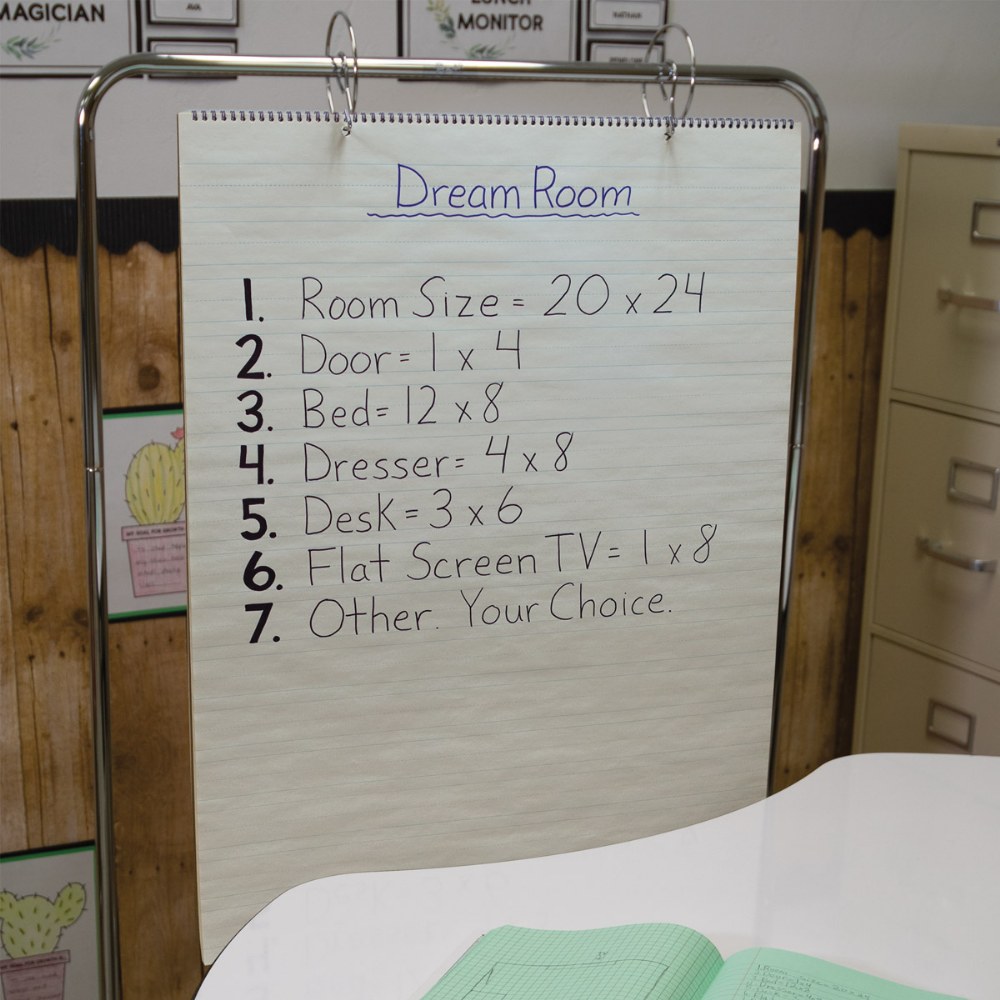 MAGICIAN
AVA
LUNCH
MONITOR
Dream Room
1. Room Size = 20 x 24
2. Door = 1 x 4
3. Bed = 12 x 8
4. Dresser = 4 x 8
5. Desk = 3 x 6
6. Flat Screen TV = 1 x 8
7. Other. Your Choice.
MY GOAL FOR GROWTH